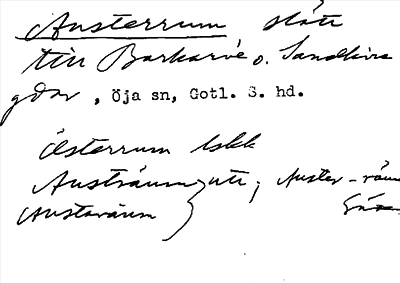 Austerrum slått
till Barkarve o. Sandkvie
gdar, Öja sn, Gotl. S. hd.
Östterrum lskk
Austräum uti; Auster-räum
Austaräum